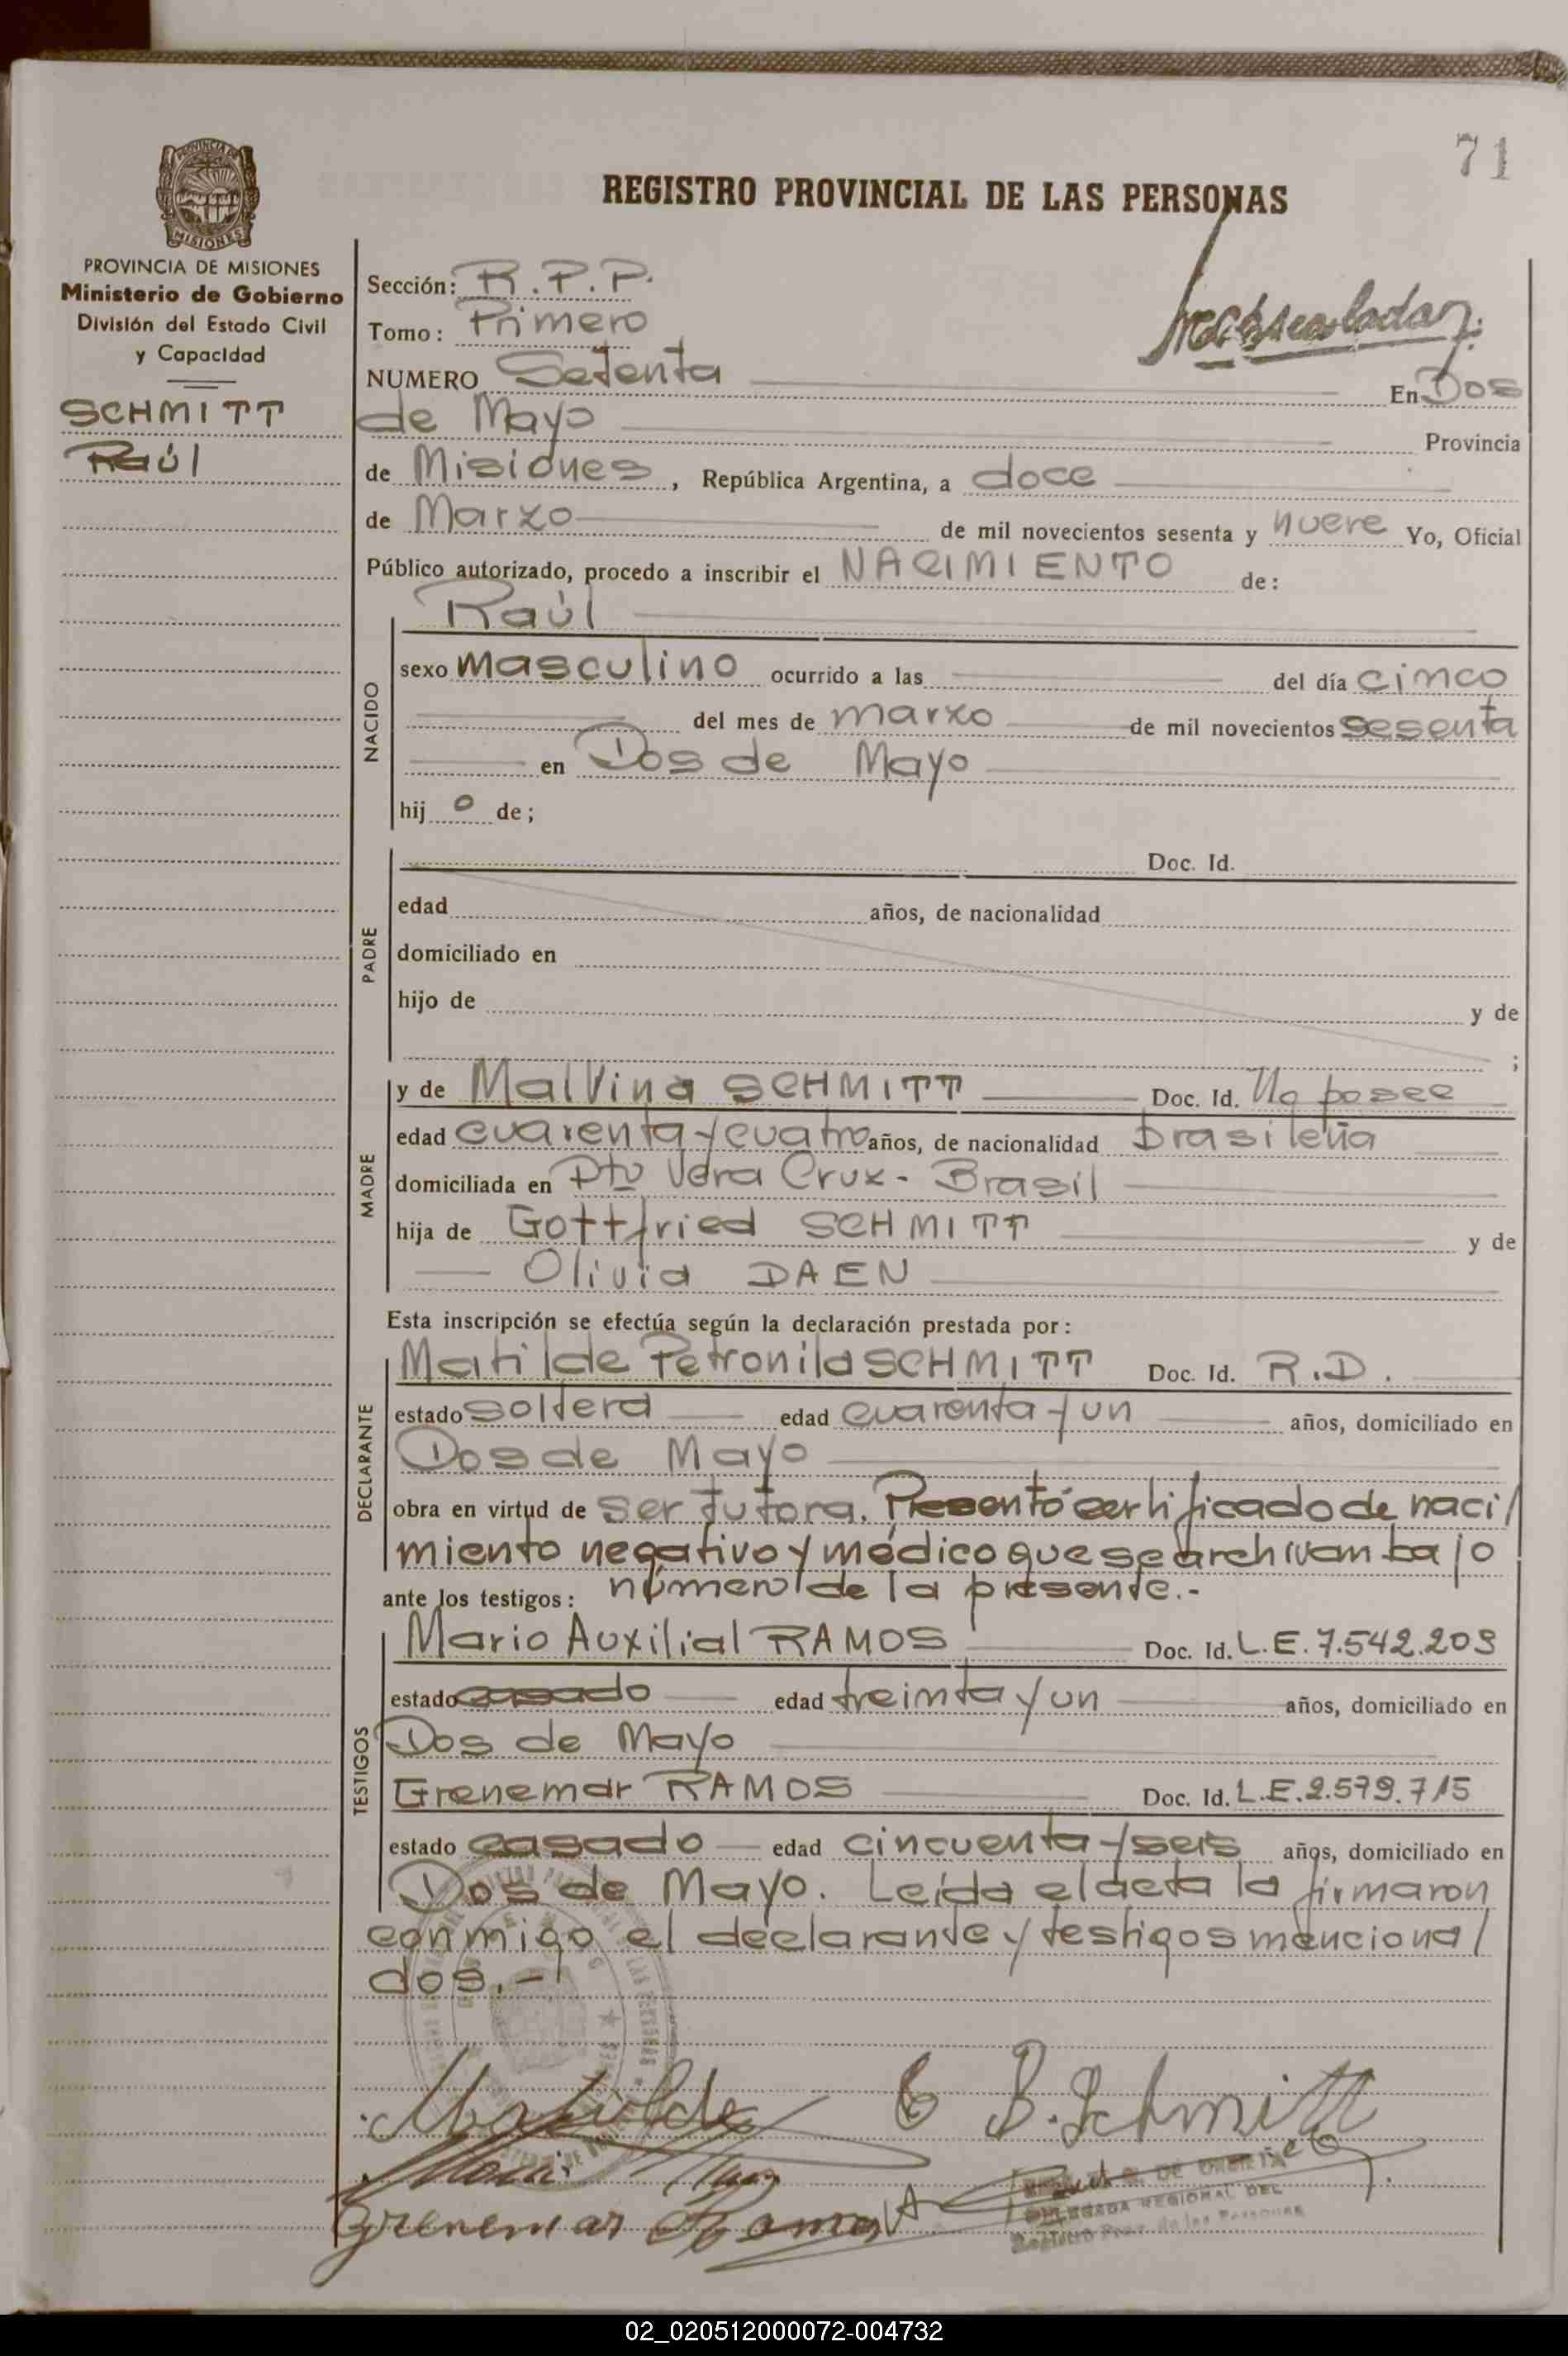 71
REGISTRO PROVINCIAL DE LAS PERSONAS
PROVINCIA DE
MISIONES
PROVINCIA DE MISIONES
Ministerio de Gobierno
División del Estado Civil
y Capacidad
SCHMITT
Raúl
Sección: R.P.P.
Tomo: Primero
NUMERO Setenta En Dos
de Mayo Provincia
de Misiones, República Argentina, a doce
de Marzo de mil novecientos sesenta y nueve Yo, Oficial
Público autorizado, procedo a inscribir el NACIMIENTO de:
Raúl
NACIDO
sexo masculino ocurrido a las del día cinco
del mes de marzo de mil novecientos sesenta
en Dos de Mayo
hij o de;
PADRE
Doc. Id.
edad años, de nacionalidad
domiciliado en
hijo de y de
;
MADRE
y de Malvina SCHMITT Doc. Id. No posee
edad cuarenta y cuatro años, de nacionalidad brasileña
domiciliada en Pto Vera Cruz - Brasil
hija de Gottfried SCHMITT y de
Olivia DAEN
Esta inscripción se efectúa según la declaración prestada por:
DECLARANTE
Matilde Petronila SCHMITT Doc. Id. R.D.
estado soltera edad cuarenta y un años, domiciliado en
Dos de Mayo
obra en virtud de ser tutora. Presentó certificado de naci/
miento negativo y médico que se archivan bajo
ante los testigos: número de la presente.-
TESTIGOS
Mario Auxilial RAMOS Doc. Id. L.E. 7.542.209
estado casado edad treinta y un años, domiciliado en
Dos de Mayo
Grenemar RAMOS Doc. Id. L.E. 2.579.715
estado casado edad cincuenta y seis años, domiciliado en
Dos de Mayo. Leída el acta la firmaron
conmigo el declarante y testigos menciona/
dos.-
Matilde B. Schmitt
Grenemar Ramos
DE
DELEGADA REGIONAL DEL
Registro Prov. de las Personas
02_020512000072-004732